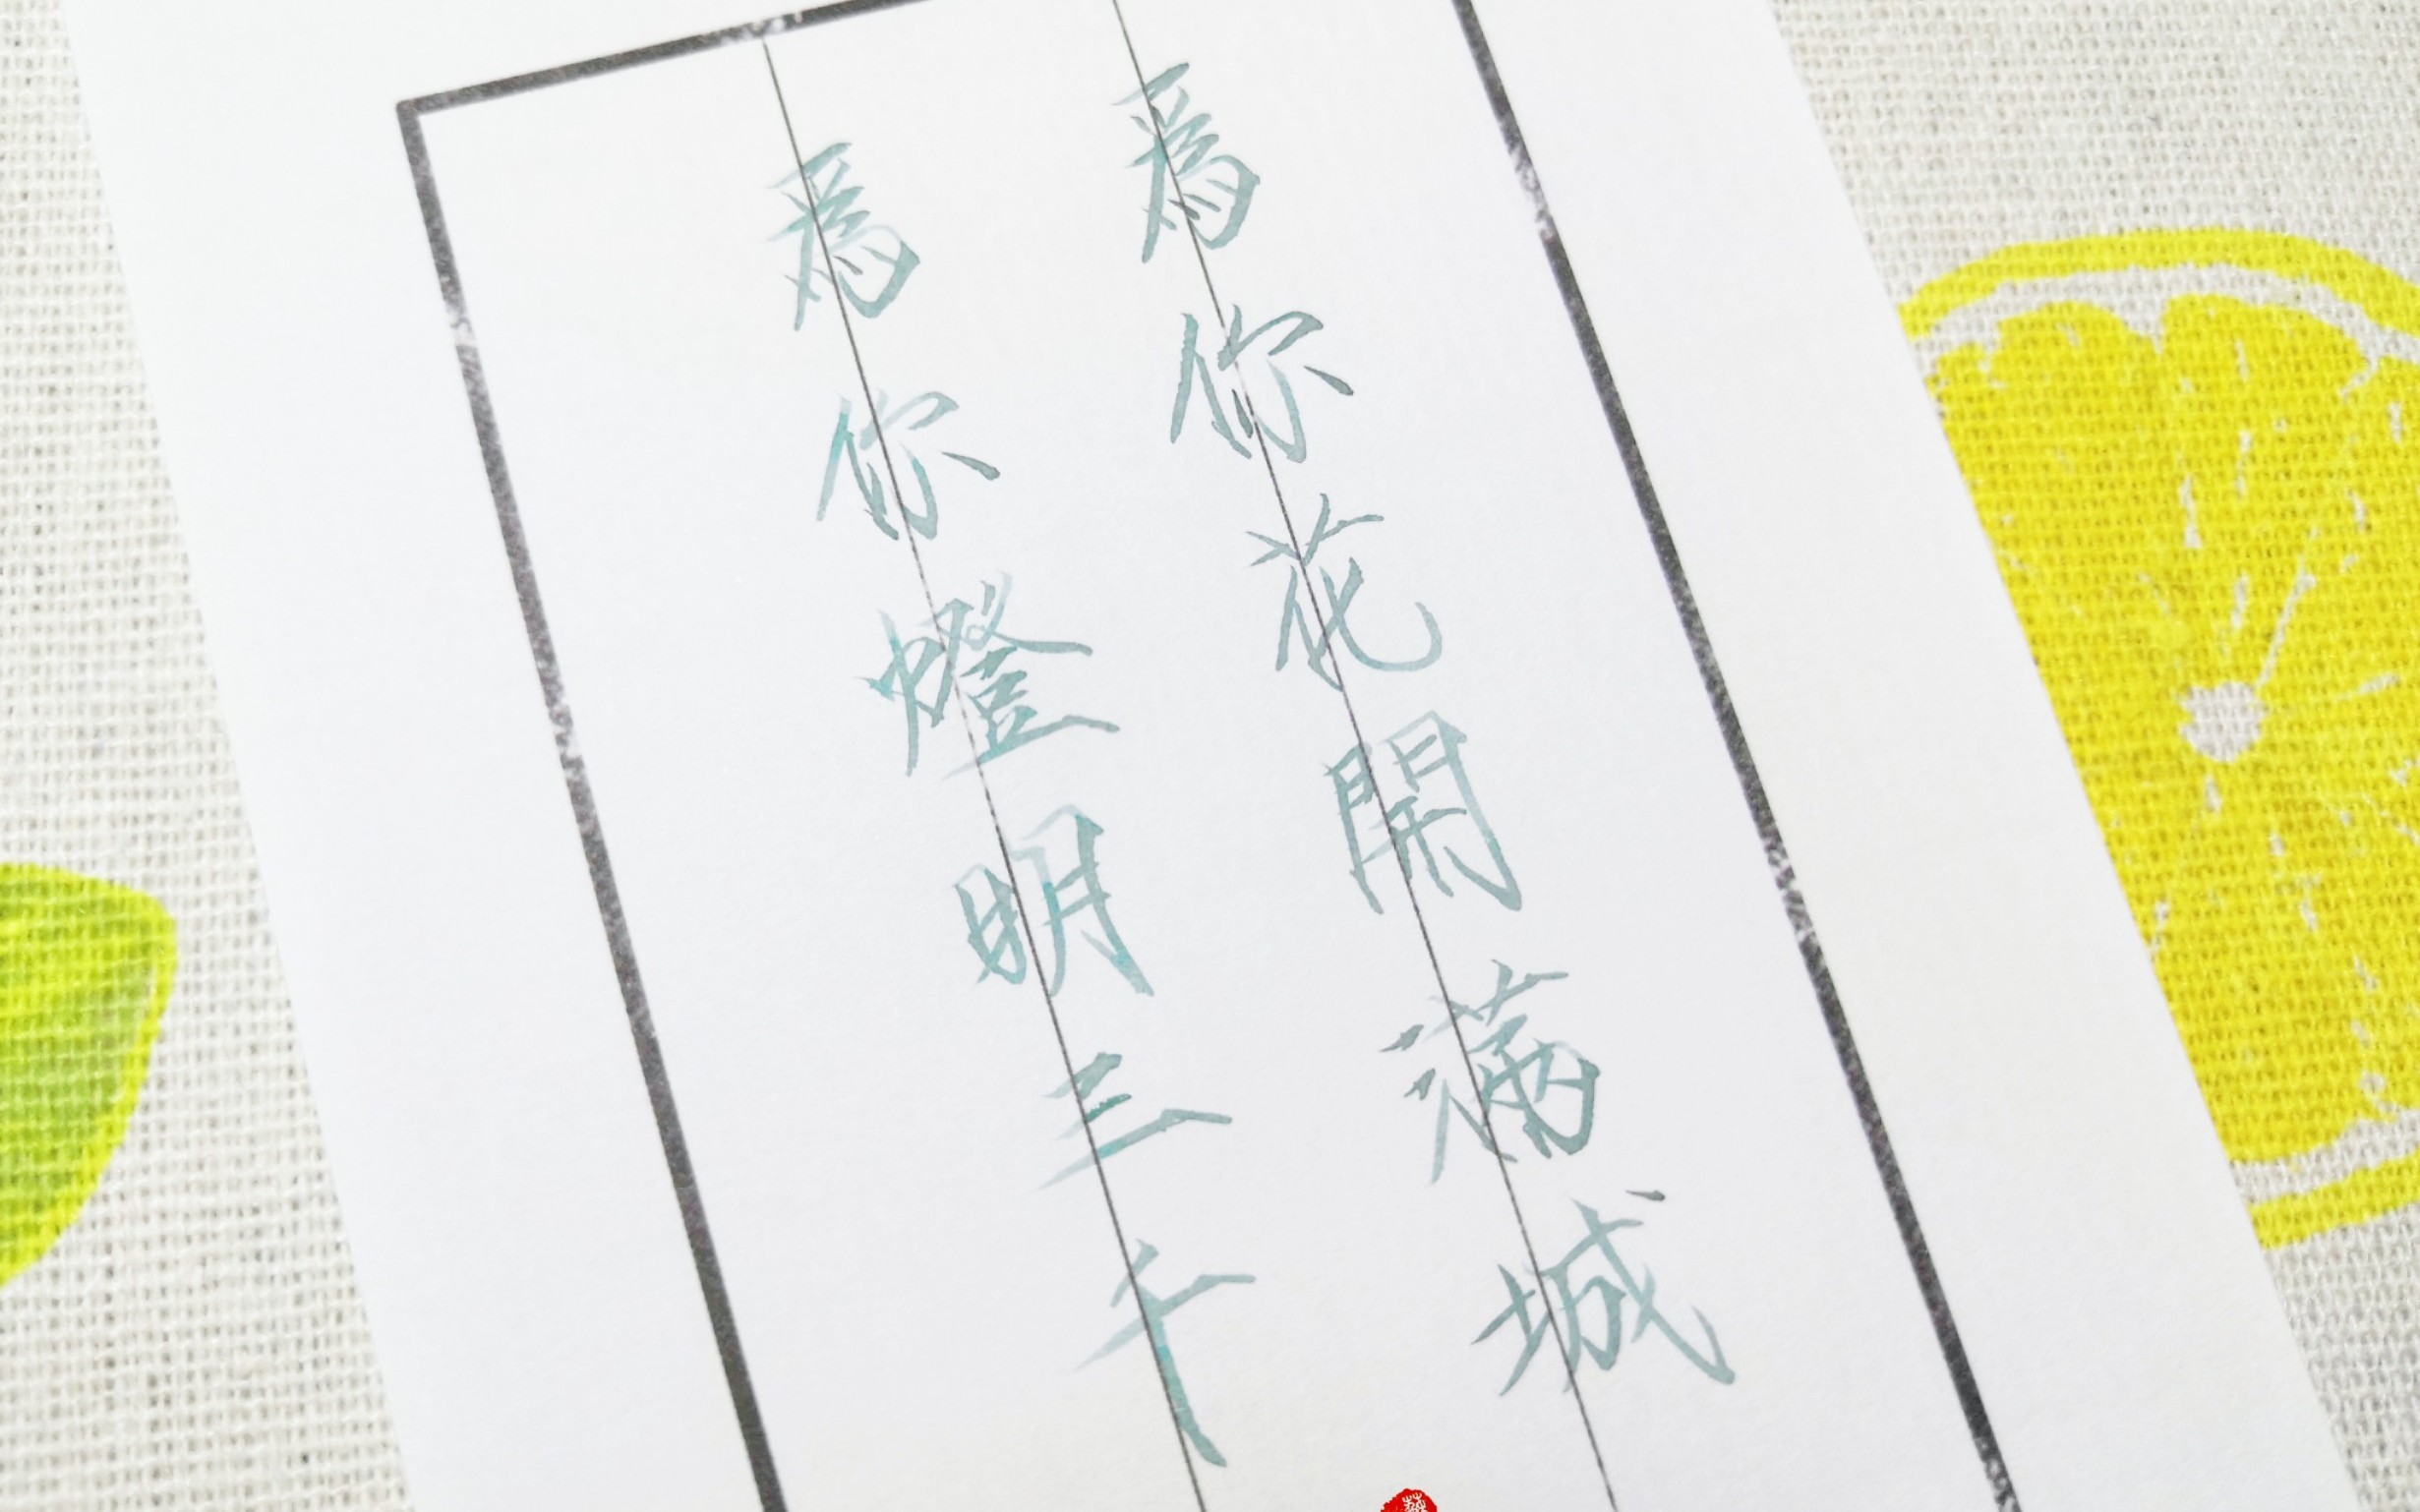 爲你花開滿城
爲你燈明三千